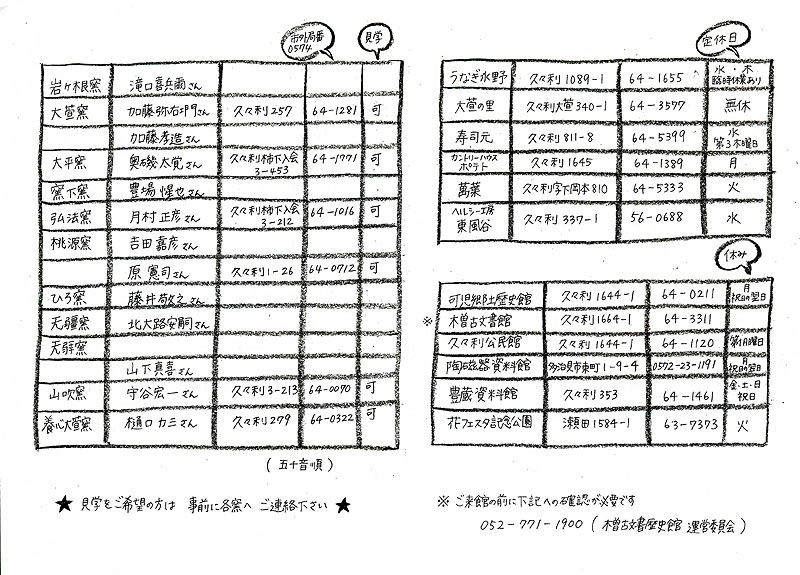 市外局番
0574
見学
岩ヶ根窯 滝口喜兵爾さん
大萱窯 加藤弥右ヱ門さん 久々利257 64-1281 可
加藤孝造さん
大平窯 奥磯太覚さん 久々利柿下入会3-453 64-1771 可
窯下窯 豊場惺也さん
弘法窯 月村正彦さん 久々利柿下入会3-212 64-1016 可
桃源窯 吉田嘉彦さん
原憲司さん 久々利1-26 64-0712 可
ひろ窯 藤井敬之さん
天疆窯 北大路安嗣さん
山下真喜さん
山吹窯 守谷宏一さん 久々利3-213 64-0070 可
養心大萱窯 樋口カミさん 久々利279 64-0322 可
(五十音順)
★ 見学をご希望の方は 事前に各窯へ ご連絡下さい ★
定休日
うなぎ水野 久々利1089-1 64-1655 水・木 臨時休業あり
大萱の里 久々利大萱340-1 64-3577 無休
寿司元 久々利811-8 64-5399 水 第3木曜日
カントリーハウス ポテト 久々利1645 64-1389 月
萬葉 久々利字下岡本810 64-5333 火
ヘルシー工房 東風谷 久々利337-1 56-0688 水
休み
可児郷土歴史館 久々利1644-1 64-0211 月 祝日の翌日
※ 木曽古文書館 久々利1664-1 64-3311
久々利公民館 久々利1644-1 64-1120 第1月曜日
陶磁器資料館 多治見市東町1-9-4 0572-23-1191 月 祝日の翌日
豊蔵資料館 久々利353 64-1461 金・土・日 祝日
花フェスタ記念公園 瀬田1584-1 63-7373 火
※ ご来館の前に下記への確認が必要です
052-771-1900 (木曽古文書歴史館 運営委員会)